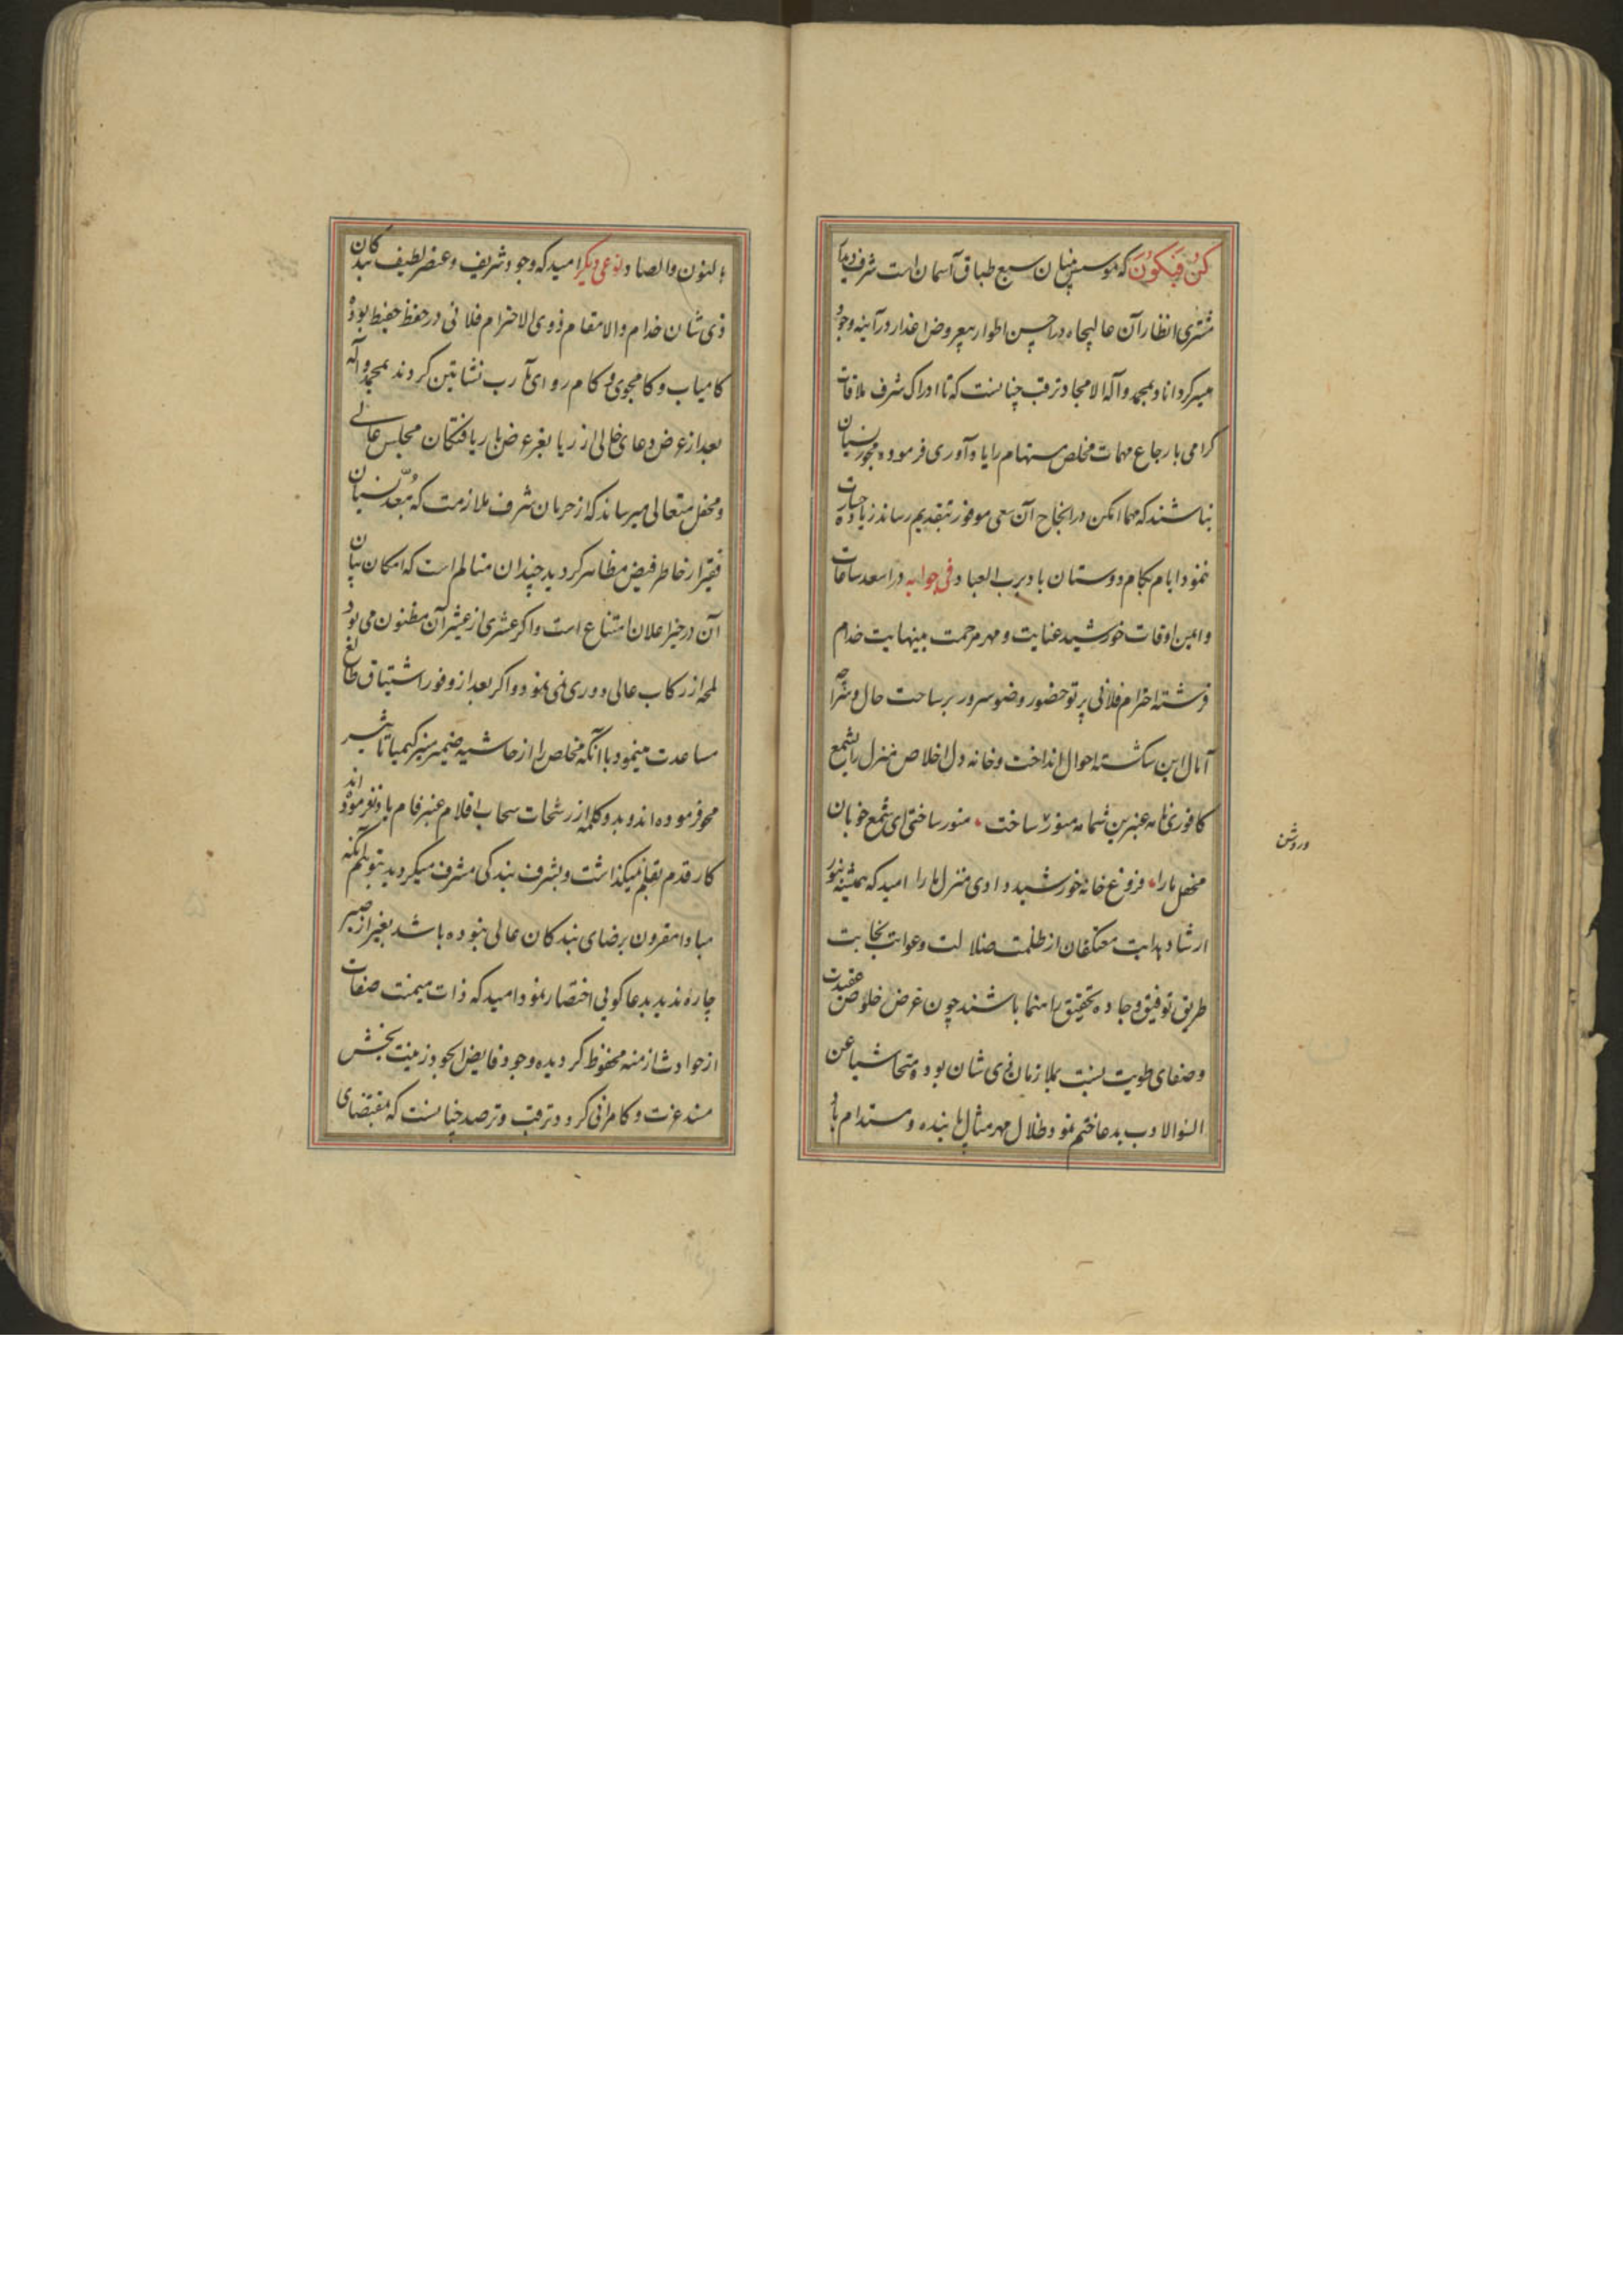 کن فیکون که موسس بنیان سبع طباق آسمان است شرف دیدار
مشتری انظار آن عالیجاه در احسن اطوار بیعروض اعذار در آینه وجود
میسر گرداناد بمحمد و آله الامجاد و ترقب چنانست که تا ادراک شرف ملاقات
گرامی بارجاع مهمات مخلص مستهام را یاد آوری فرموده مجوز نسیان
نباشند که مهما امکن در انجاح آن سعی موفور بتقدیم رساند زیاده جسارت
ننمود ایام بکام دوستان باد برب العباد و فی جوابه در اسعد ساعات
و ایمن اوقات خورشید عنایت و مهر مرحمت بینهایت خدام
فرشته احترام فلانی پرتو حضور و ضو سرور بر ساحت حال و
آمال این شکسته احوال انداخت و خانه دل اخلاص منزل را بشمع
کافوری نامه عنبرین شمامه منور ساخت منور ساختی ای شمع خوبان
محفل ما را فروغ خانه خورشید دادی منزل ما را امید که همیشه بنور
ارشاد و هدایت معتکفان از ظلمت ضلالت و غوایت بجانب
طریق توفیق و جاده تحقیق راهنما باشند چون غرض خلوص عقیدت
و صفای طویت نسبت بملازمان ذی شان بود و متحاشیا عن
السؤالادب بدعا ختم نمود ظلال مهر مثال پاینده و مستدام باد
وروشن
بالنون والصاد و نوعی دیگر امید که وجود شریف و عنصر لطیف بندگان
ذی شان خدام والا مقام ذوی الاحترام فلانی در حفظ حفیظ بوده
کامیاب و کامجوی و کام روای مآرب نشاتین گردند بمحمد و آله
بعد از عرض دعای خالی از ریا بعز عرض باریافتگان مجلس عالی
و محفل متعالی میرساند که از حرمان شرف ملازمت که مبعد نسیان
فقیر از خاطر فیض مظاهر گردید چندان متالم است که امکان بیان
آن در حیز اعلان امتناع است و اگر عشری از عشیر آن مظنون می بود
لمحه از رکاب عالی دوری نمی نمود و اگر بعد از وفور اشتیاق طالع
مساعدت مینمود با آنکه مخلص را از حاشیه ضمیر منیر کیمیا تاثیر
محو فرموده اند و بدو کلمه از رشحات سحاب اقلام عنبر فام یاد نفرموده اند
کار قدم بقلم نمیگذاشت و بشرف بندگی مشرف میگردید بتوهم آنکه
مبادا مقرون برضای بندگان عالی نبوده باشد بغیر از صبر
چاره ندید بدعا گویی اختصار نمود امید که ذات میمنت صفات
از حوادث ازمنه محفوظ گردیده وجود فایض الجود زینت بخش
مسند عزت و کامرانی گردد و ترقب و ترصد چنانست که بمقتضای